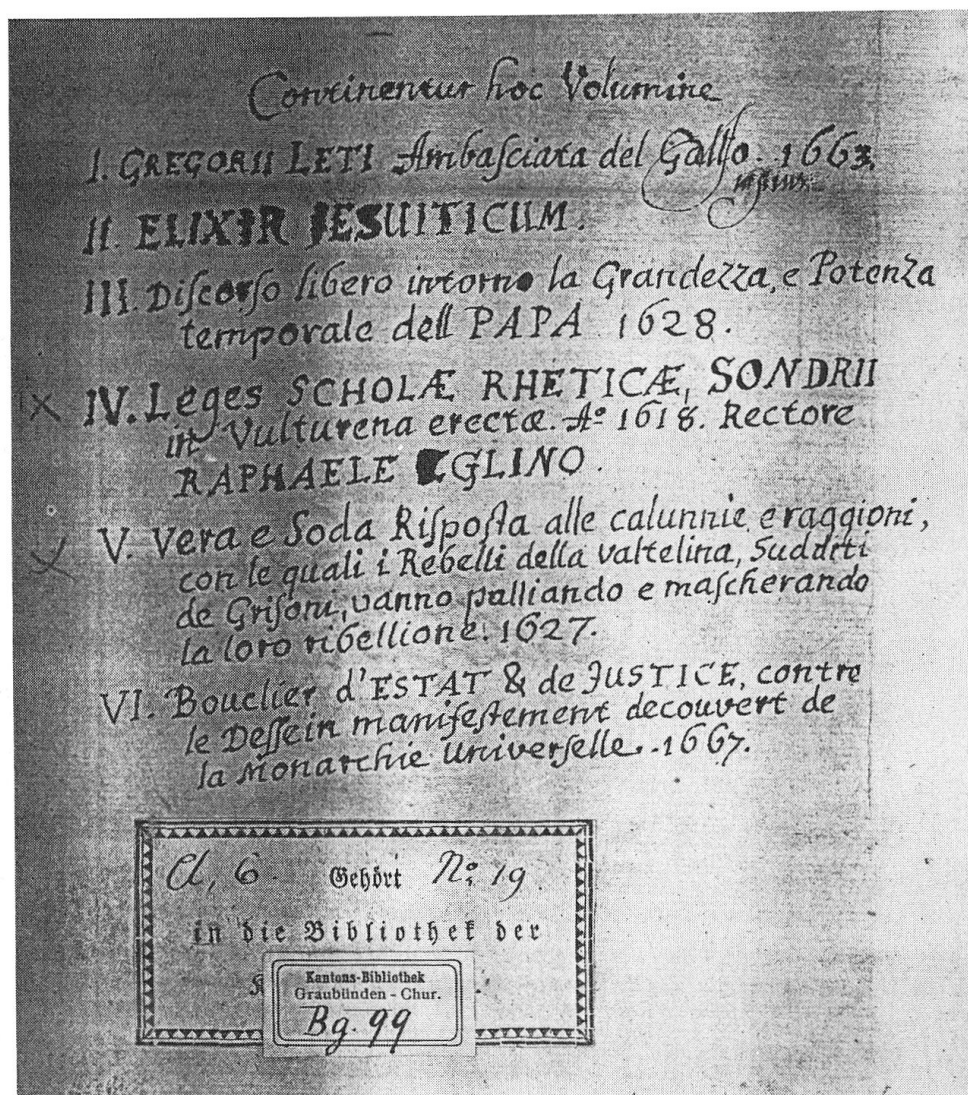 Continentur hoc Volumine
I. GREGORII LETI Ambaſciata del Gallo. 1663.
II. ELIXIR JESUITICUM.
III. Diſcorſo libero intorno la Grandezza, e Potenza
temporale dell PAPA 1628.
IV. Leges SCHOLÆ RHETICÆ, SONDRII
in Vulturena erectæ. Aº 1618. Rectore
RAPHAELE EGLINO.
V. Vera e Soda Riſpoſta alle calunnie e raggioni,
con le quali i Rebelli della valtelina, Sudditi
de Griſoni, vanno palliando e maſcherando
la loro ribellione. 1627.
VI. Bouclier d'ESTAT & de JUSTICE, contre
le Deſſein manifeſtement decouvert de
la Monarchie Univerſelle. 1667.
Cl, 6. Gehört Nº 19
in die Bibliothek der
K
Kantons-Bibliothek
Graubünden - Chur.
Bg. 99